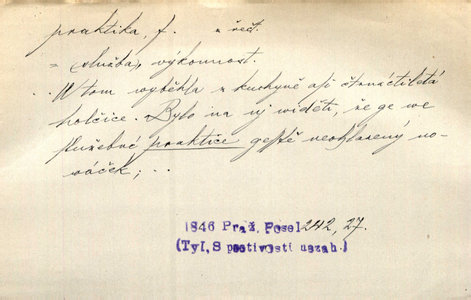 praktika, f. z řečt.
= (služba), výkonnost.
.. W tom vyběhla z kuchyně asi čtrnáctiletá
holčice. Bylo na nj widěti, že ge we
služebné praktice geště neohlazený no-
wáček; ...
1846 Praž. Posel 242, 27.
(Tyl, S poctivostí nszah.)